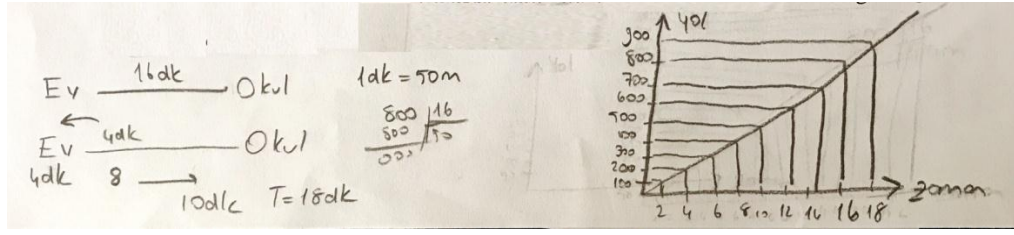 16dk
Ev Okul
4dk
Ev Okul
4dk 8 10dk T=18dk
1dk = 50m
800 16
800 50
000
yol
900
800
700
600
500
400
300
200
100
2 4 6 8 10 12 14 16 18 zaman